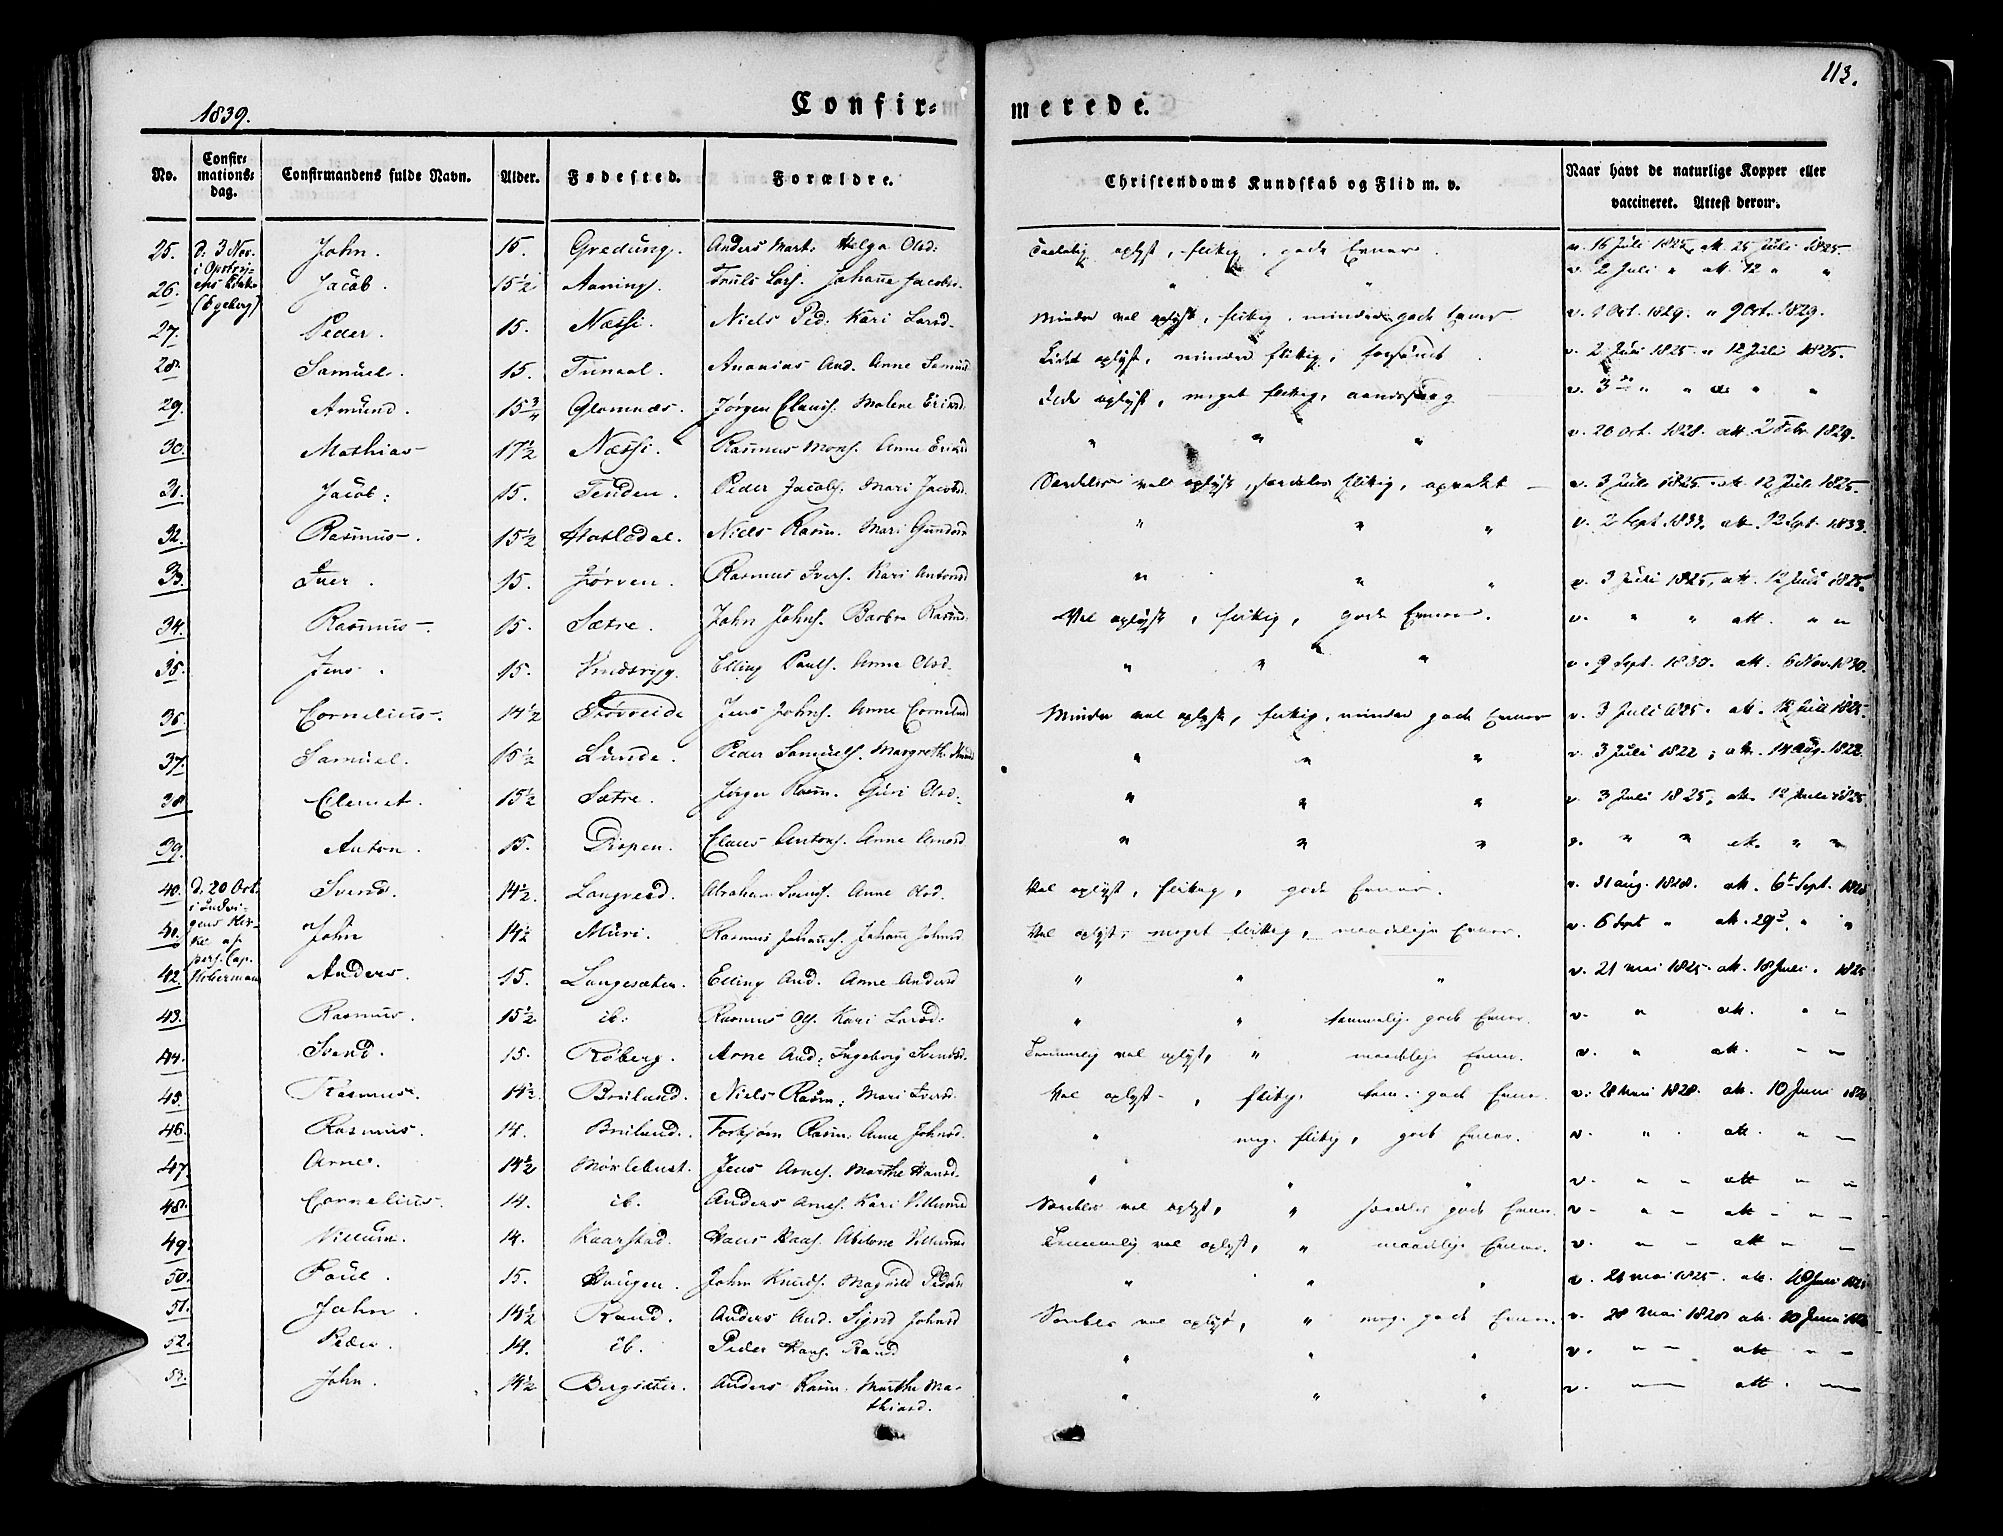 113.
1839.
Confir= merede.
No. Confirmationsdag. Confirmandens fulde Navn. Alder. Fødested. Forældre. Christendoms Kundskab og Flid m. v. Naar havt de naturlige Kopper eller vaccineret. Attest derom.
25. d. 3 Nov. John. 15. Gredung. Anders Mart: Helga Olsd: oplyst, flitig, gode Evner. v. 15 Juli 1825 att. 25 Juli 1825.
26. i Jacob. 15 1/2 Truls Lars. Johanne Jacobs: " " v. 2 Juli " att. 12 " "
(Egeberg)
27. Peder. 15. Næssi. Niels Ped: Kari Larsd. Minder vel oplyst, flitig, mindre gode Evner v. 1 Oct. 1829. " 9 Oct. 1829.
28. Samuel. 15. Ananias And. Anne Samuels Lidet oplyst, minder flitig, forsømt v. 2 Juli 1825 " 12 Juli 1825.
29. Amund. 15 3/4 Glomnæs. Jørgen Claus. Malene Ericsd. Lidet oplyst, meget flitig, v. 3 " " att. " "
30. Mathias 17 1/2 Næssi. Rasmus Mons. Anne " " " v. 20 Oct. 1828. att. 2 Febr. 1829.
31. Jacob: 15. Tenden. Peder Jacobs. Mari Jacobsd. Særdeles vel oplyst, særdeles flitig, opvakt v. 3 Juli 1825. att. 12 Juli 1825.
32. Rasmus 15 1/2 Niels Rasm. Mari Gundersd " " " v. 2 Sept. 1833. att. 12 Sept. 1833.
33. Iver. 15. Rasmus Ivers. Kari Antonsd " " " v. 3 Juli 1825, att. 12 Juli 1825.
34. Rasmus 15. Sætre. John Johns. Barbra Rasmus: Vel oplyst, flitig, gode Evner. v. " " att. " "
35. Jens. 15. Vindsryg. Elling Pauls. Anne Olsd. " " " v. 9 Sept. 1830. att. 6 Nov. 1830.
36. Cornelius. 14 1/2 Jens Johns. Anne Cornelsd Minder vel oplyst, flitig, mindre gode Evner v. 3 Juli 1825. att. 12 Juli 1825.
37. Samuel. 15 1/2 Lunde. Peder Samuels. Margrethe " " " v. 3 Juli 1822, att. 14 Aug. 1822.
38. Clemet. 15 1/2 Sætre. Jørgen Rasm. Guri Olsd. " " " v. 3 Juli 1825, att. 12 Juli 1825
39. Anton. 15. Dispen. Claus Antons. Anne Arnesd " " " v. " " att. " "
40. d. 20 Oct. Svend. 14 1/2. Langvend. Abraham Svends. Anne Olsd. Vel oplyst, flitig, gode Evner. v. 31 Aug. 1828. att. 6t Sept. 1828
41. John 14 1/2 Muri. Rasmus Johannes. Johanne Johnsd Vel oplyst, meget flitig, maadelige Evner. v. 6 Sept " att. 29d " "
42. Anders. 15. Langesæter. Elling And. Anne Andersd " " " v. 21 Mai 1825 att. 18 Juli. 1825
43. Rasmus. 15 1/2 ib: Rasmus Ols. Kari Larsd: " " temmelig gode Evner. v. " att. " "
44. Svend. 15. Røberg. Arne And: Ingeborg Svendsd. Temmelig vel oplyst, " maadelige Evner. v. " att. " "
45. Rasmus. 14 1/2. Breilund. Niels Rasm: Mari Iversd. Vel oplyst, flitig. tem. gode Evner. v. 28 Mai 1828. att. 10 Juni 1828
46. Rasmus. 14. Breilund. Torkjørn Rasm: Anne Johnsd. " meg. flitig, gode Evner. v. " att. " "
47. Arne. 14 1/2 Mørlebust. Jens Arnes. Marthe Hansd. " " " v. " " att " "
48. Cornelius. 14. ib. Anders Arnes. Kari Villumsd Særdeles vel oplyst, " særdeles gode Evner. v. " " att " "
49. Villum. 14. Kaarstad. Hans Hans. Abelone Villumsd Temmelig vel oplyst, " maadelige Evner. v. " " att " "
50. Poul. 15. Haugen. John Knuds. Magnild Pedersd " " " v. 21 Mai 1825. att. Juni 1825
51. John. 14 1/2 Rand. Anders And. Sigrid Johnsd Særdeles vel oplyst, " meg. gode Evner. v. 28 Mai 1828 att. 10 Juni 1828
52. Peder. 14. ib. Peder Hans. " " " v. " " att " "
53. John. 14 1/2 Bergsæter. Anders Rasm. Marthe Mathiasd. " " " v. " att. "